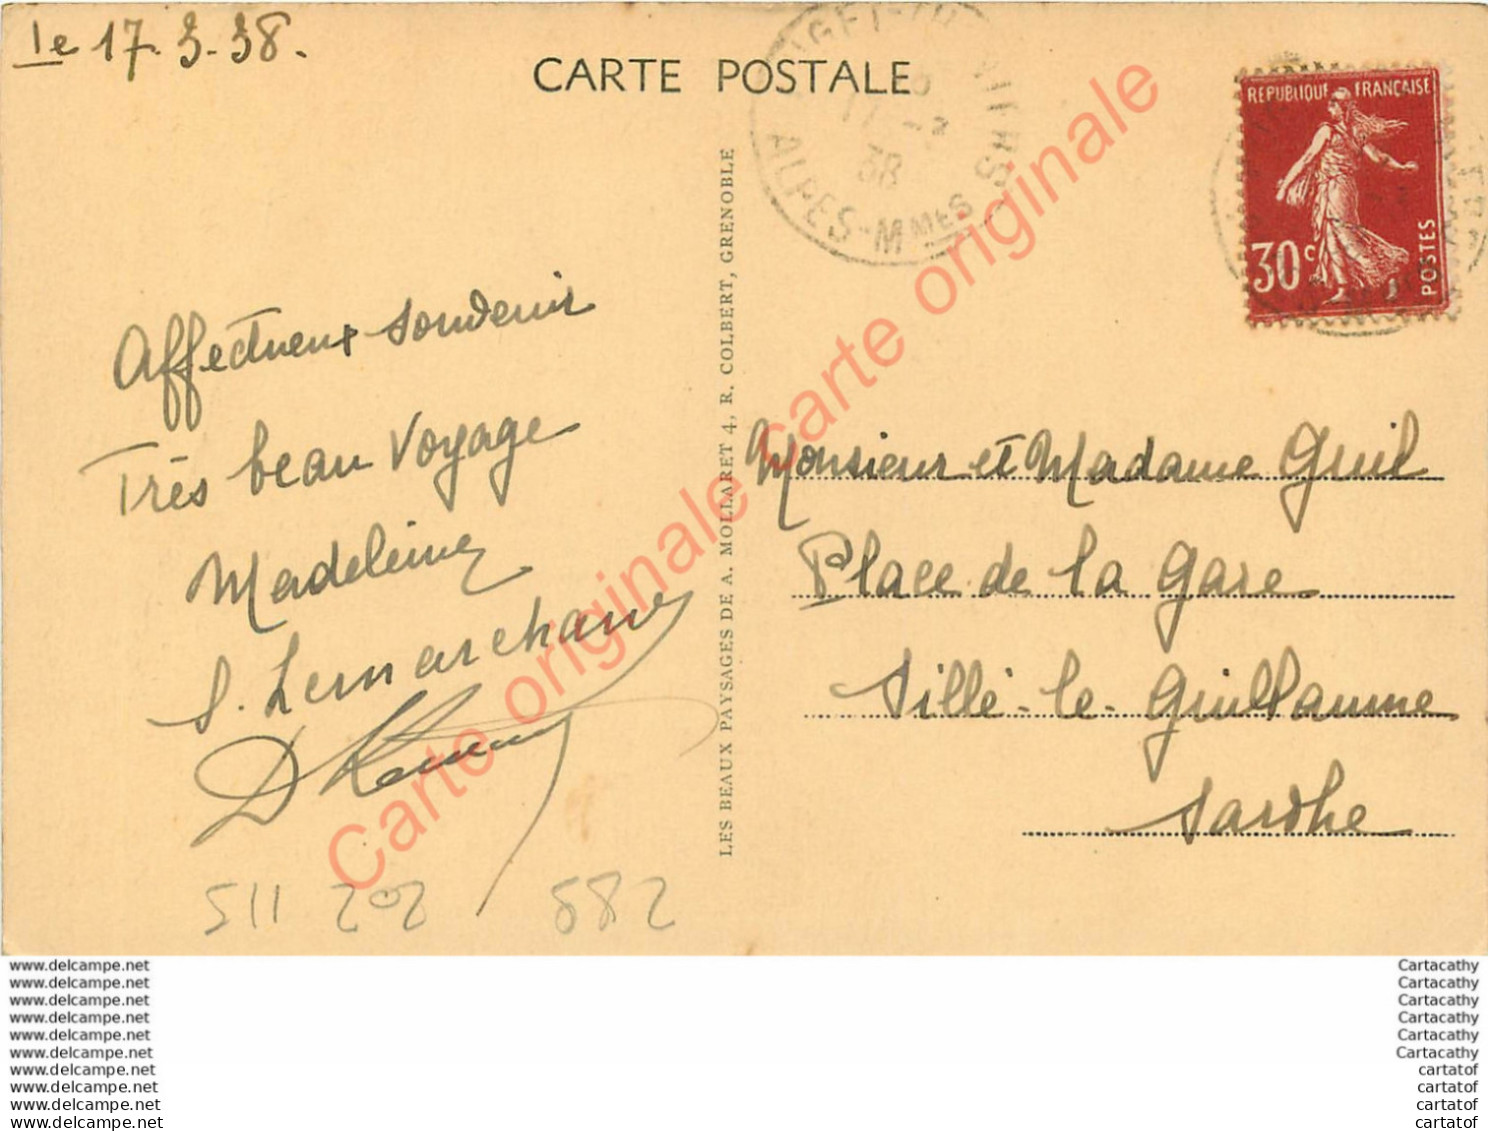 le 17.3.38.
CARTE POSTALE
PUGET-THENIERS
17 -3
38
ALPES-MMES
REPUBLIQUE FRANÇAISE
30c
POSTES
Affectueux souvenir
Très beau voyage
Madeleine
S. Lemarchand
LES BEAUX PAYSAGES DE A. MOLLARET 4, R. COLBERT, GRENOBLE
Monsieur et Madame Guil
Place de la Gare
Sillé-le-Guillaume
Sarthe
511 202 882
Carte originale carte originale
Carte originale
www.delcampe.net
www.delcampe.net
www.delcampe.net
www.delcampe.net
www.delcampe.net
www.delcampe.net
www.delcampe.net
www.delcampe.net
www.delcampe.net
www.delcampe.net
Cartacathy
Cartacathy
Cartacathy
Cartacathy
Cartacathy
Cartacathy
cartatof
cartatof
cartatof
cartatof